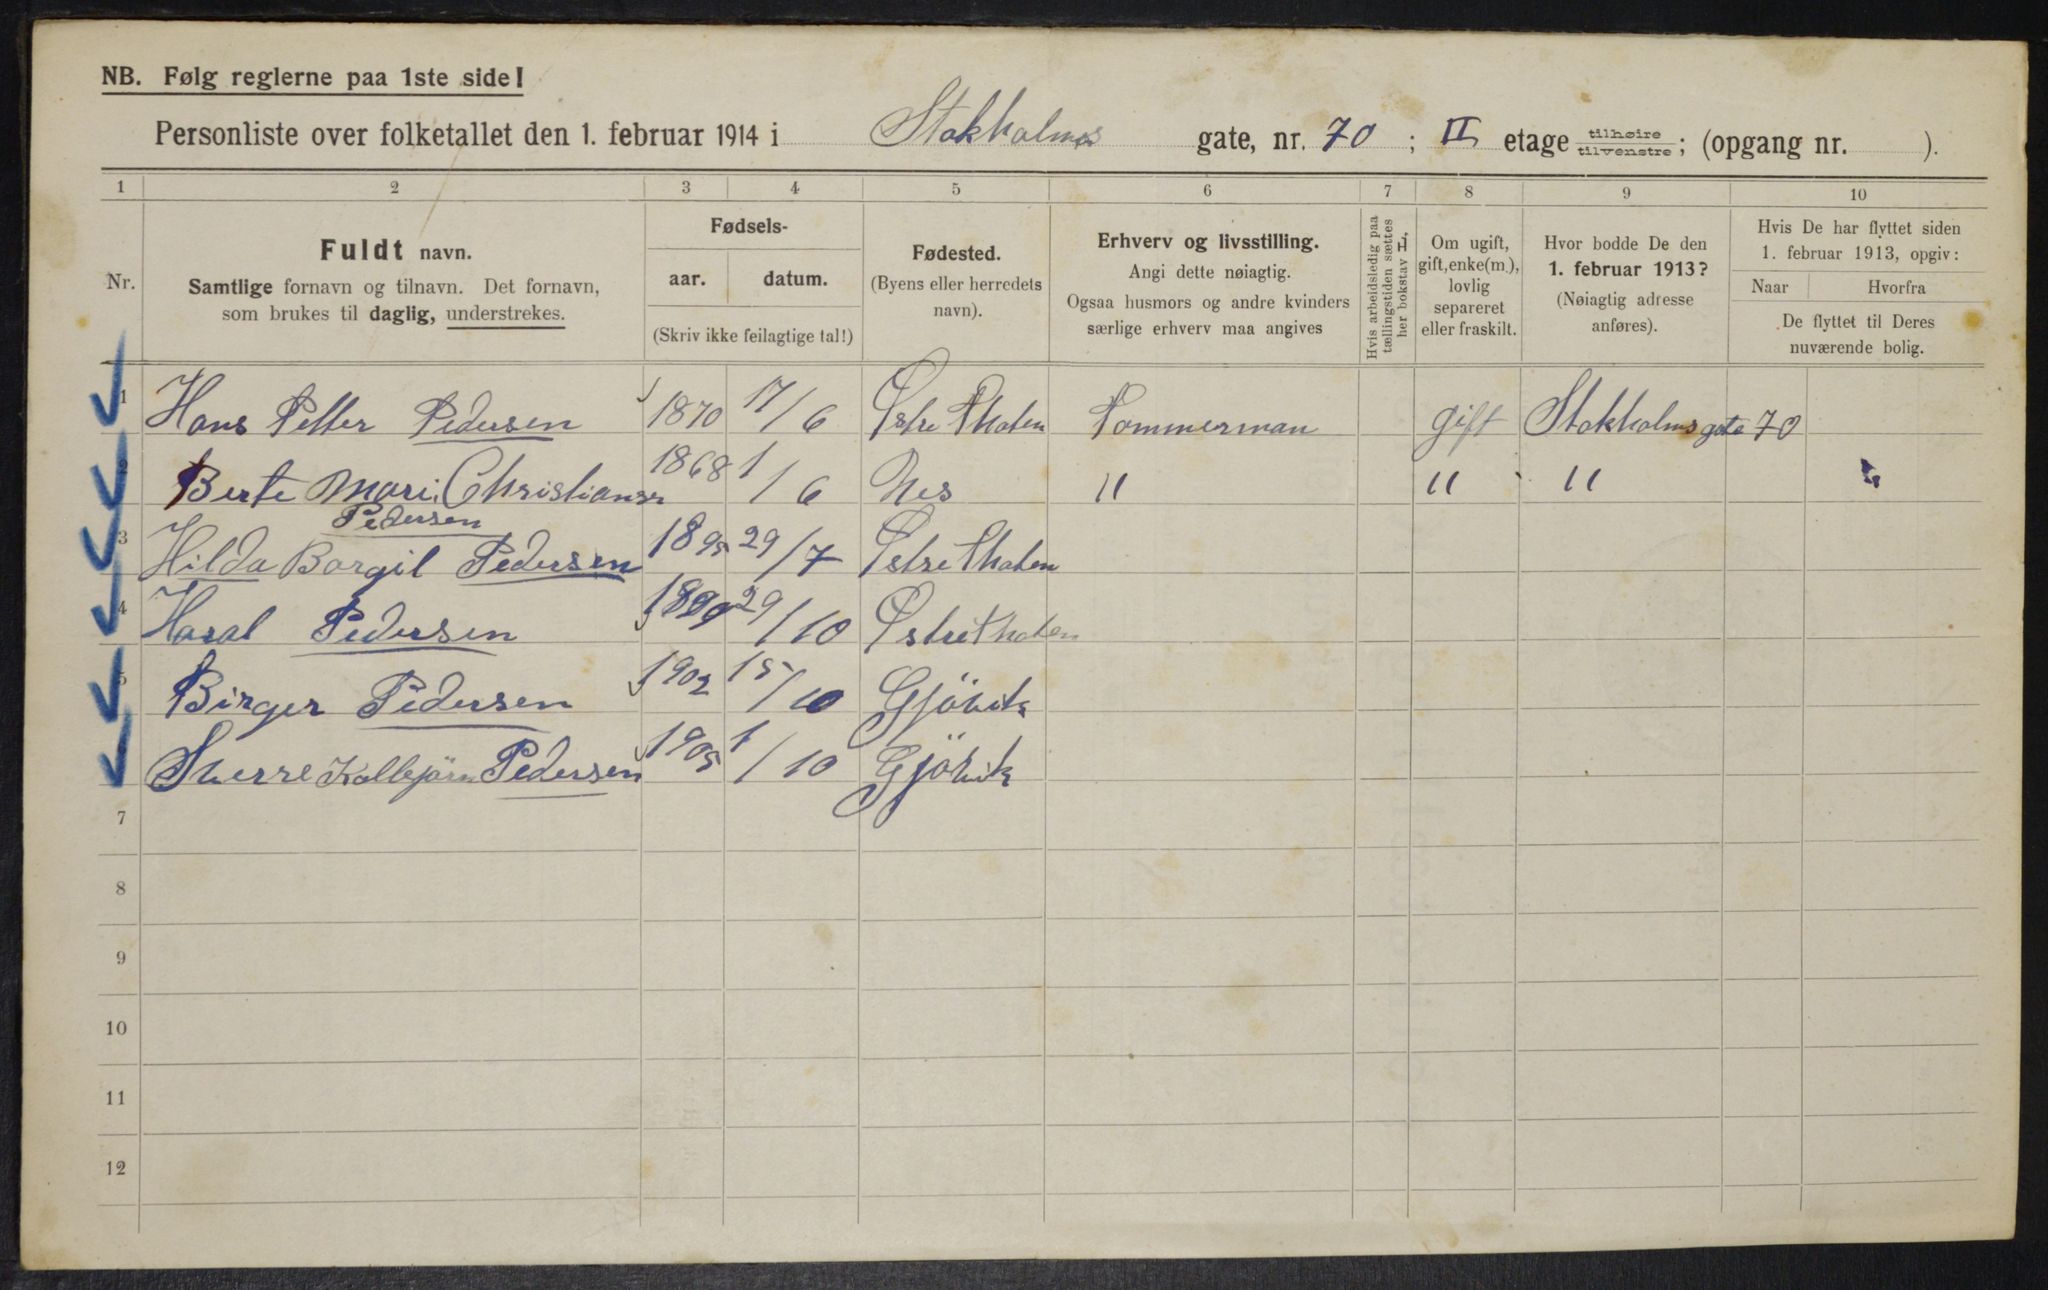 NB. Følg reglerne paa 1ste side!
Personliste over folketallet den 1. februar 1914 i Stokholms gate, nr. 70 ; II etage tilhøire tilvenstre; (opgang nr. ).
1 2 3 4 5 6 7 8 9 10
Nr.
Fuldt navn.
Samtlige fornavn og tilnavn. Det fornavn,
som brukes til daglig, understrekes.
Fødsels-
aar. datum.
(Skriv ikke feilagtige tal!)
Fødested.
(Byens eller herredets
navn).
Erhverv og livsstilling.
Angi dette nøiagtig.
Ogsaa husmors og andre kvinders
særlige erhverv maa angives
Hvis arbeidsledig paa
tællingstiden sættes
her bokstav L.
Om ugift,
gift, enke(m.),
lovlig
separeret
eller fraskilt.
Hvor bodde De den
1. februar 1913?
(Nøiagtig adresse
anføres).
Hvis De har flyttet siden
1. februar 1913, opgiv:
Naar Hvorfra
De flyttet til Deres
nuværende bolig.
1 Hans Petter Pedersen 1870 17/6 Østre Thoten Tommerman gift Stokholms gate 70
2 Berte Mari Christianser 1868 1/6 Nes " " "
Pedersen
3 Hilda Borgil Pedersen 1895 29/7 Østre Thoten
4 Haral Pedersen 1899 29/10 Østre Thoten
5 Birger Pedersen 1902 15/10 Gjövik
6 Sverre Kolbjörn Pedersen 1905 1/10 Gjövik
7
8
9
10
11
12